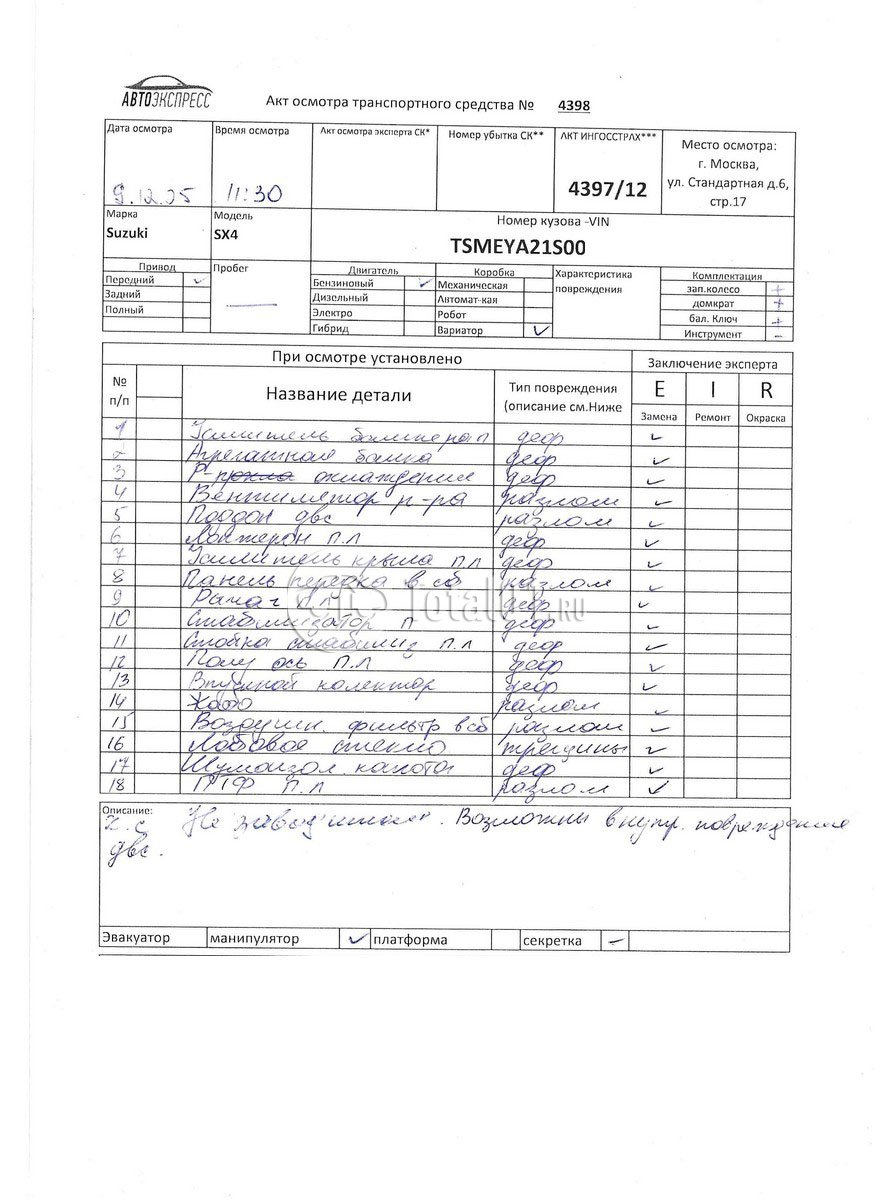 АВТОЭКСПРЕСС
Акт осмотра транспортного средства № 4398
Дата осмотра Время осмотра Акт осмотра эксперта СК* Номер убытка СК** АКТ ИНГОССТРАХ*** Место осмотра:
г. Москва,
ул. Стандартная д.6,
стр.17
11:30 4397/12
Марка Модель Номер кузова -VIN
Suzuki SX4 TSMEYA21S00
Привод Пробег Двигатель Коробка Характеристика повреждения Комплектация
Передний ✓ Бензиновый ✓ Механическая зап.колесо +
Задний Дизельный Автомат-кая домкрат +
Полный Электро Робот бал. Ключ +
Гибрид Вариатор ✓ Инструмент –
При осмотре установлено Заключение эксперта
№ п/п Название детали Тип повреждения (описание см.Ниже E I R
Замена Ремонт Окраска
1 Усилитель бампера п деф ✓
2 Агрегатная балка деф ✓
3 охлаждения деф ✓
4 Вентилятор р-ра разлом ✓
5 Поддон двс разлом ✓
6 Лонжерон п.л деф ✓
7 Усилитель крыла п.л деф ✓
8 Панель передка в сб разлом ✓
9 Рычаг п.л деф ✓
10 Стабилизатор п деф ✓
11 Стойка стабилиз п.л деф ✓
12 Полу ось п.л деф ✓
13 Впускной колектор деф ✓
14 Жабо разлом ✓
15 Воздушн. фильтр в сб разлом ✓
16 Лобовое стекло трещины ✓
17 Шумоизол. капота деф ✓
18 ПТФ п.л разлом ✓
GTS Total01.RU
Описание:
Не заводится. Возможны внутр. повреждения
двс.
Эвакуатор манипулятор ✓ платформа секретка –